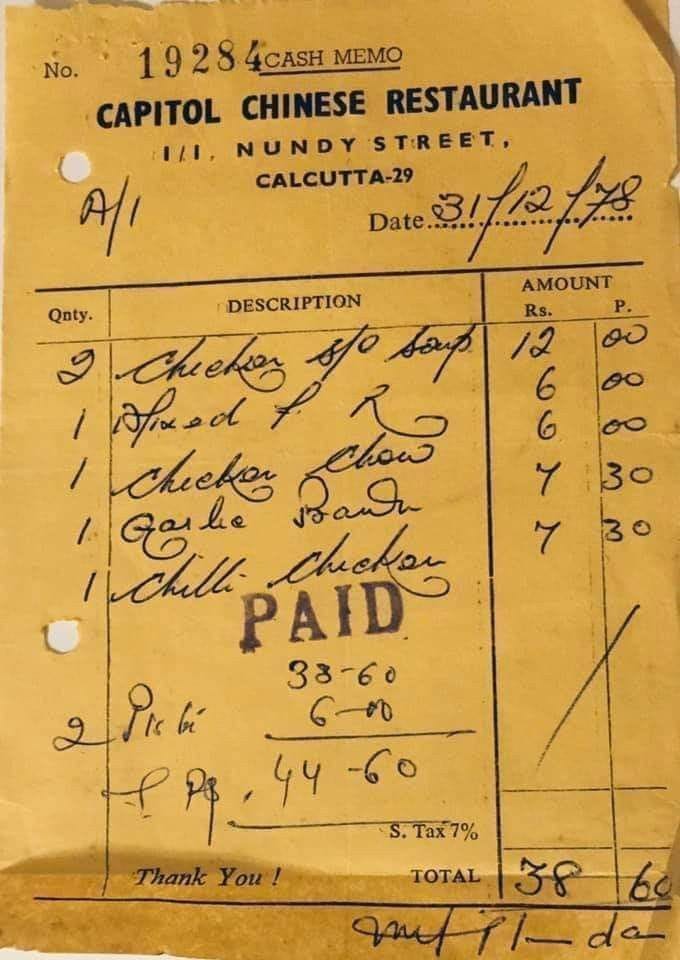 No. 19284 CASH MEMO
CAPITOL CHINESE RESTAURANT
1/1, NUNDY STREET,
CALCUTTA-29
A/1
Date 31/12/78
Qnty. DESCRIPTION AMOUNT
Rs. P.
2 Chicken s/o Soup 12 00
1 Mixed F. R 6 00
1 Chicken Chow 6 00
1 Garlic 7 30
1 Chilli Chicken 7 30
PAID
38-60
2 6-00
44-60
S. Tax 7%
Thank You ! TOTAL 38 60